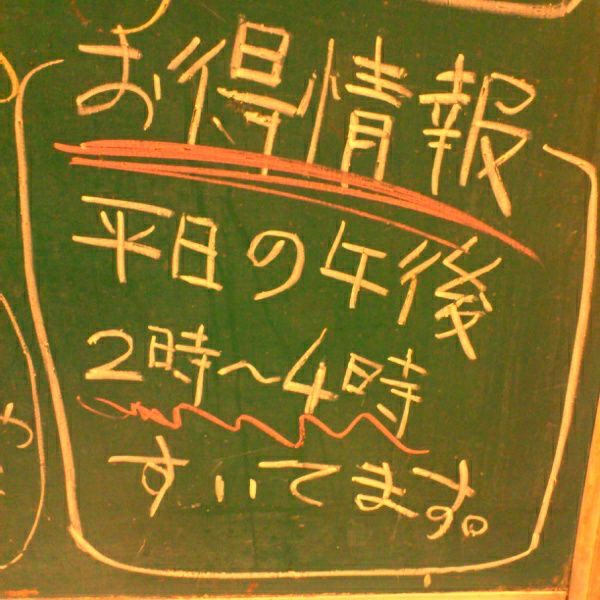 お得情報
平日の午後
2時〜4時
すいてます。